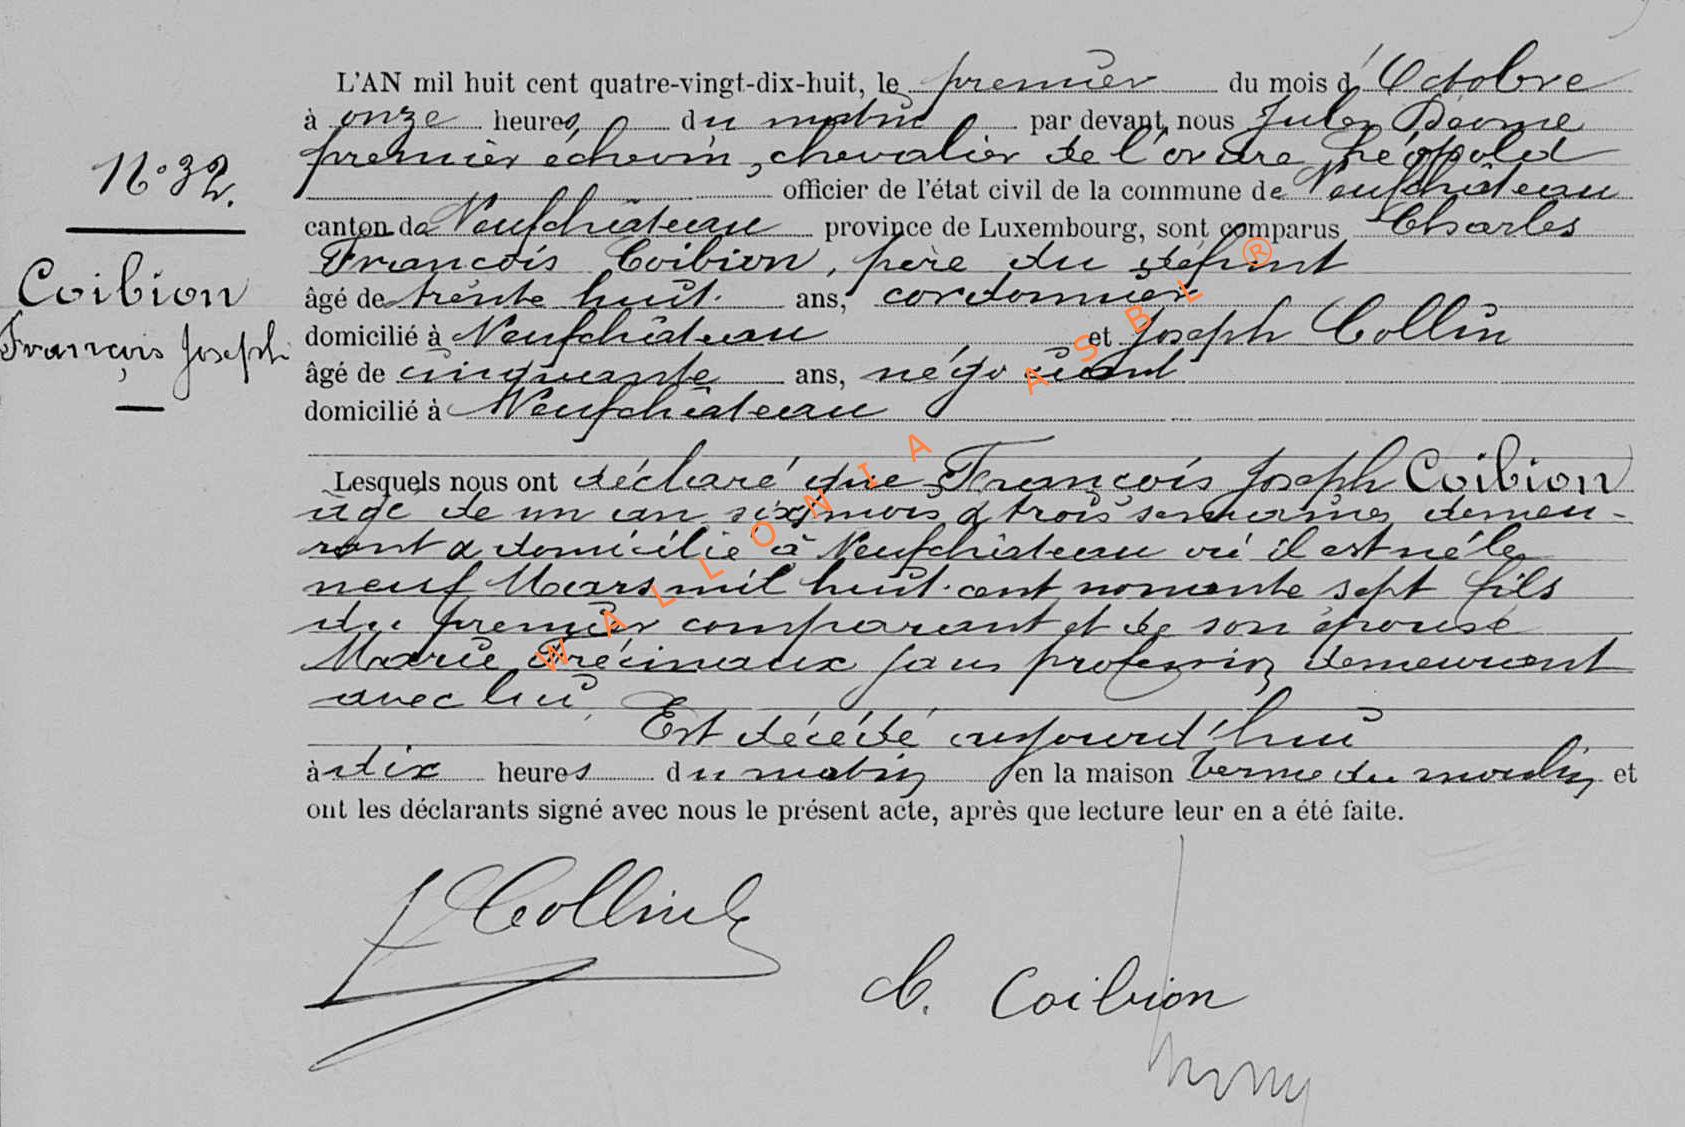 L'AN mil huit cent quatre-vingt-dix-huit, le premier du mois d'Octobre
à onze heures du matin par devant nous Jules
premier échevin, chevalier de l'ordre Léopold
N° 32.
officier de l'état civil de la commune de Neufchâteau
canton de Neufchâteau province de Luxembourg, sont comparus Charles
François Coibion, père du défunt
Coibion
François Joseph
âgé de trente huit ans, cordonnier
domicilié à Neufchâteau et Joseph Collin
âgé de cinquante ans, négociant
domicilié à Neufchâteau
Lesquels nous ont déclaré que François Joseph Coibion
âgé de un an six mois & trois semaines demeu-
rant & domicilié à Neufchâteau où il est né le
neuf Mars mil huit cent nonante sept fils
du premier comparant et de son épouse
Marie sans profession demeurant
avec lui
Est décédé aujourd'hui
à dix heures du matin en la maison du moulin et
ont les déclarants signé avec nous le présent acte, après que lecture leur en a été faite.
J Collin
C. Coibion
WALLONIA ASBL ®